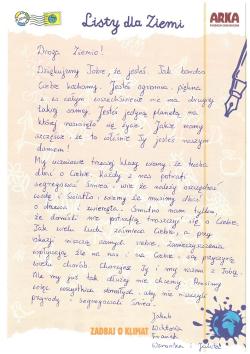 Listy dla Ziemi
ARKA
Droga Ziemio!
Dziękujemy Tobie, że jesteś. Jak bardzo
Ciebie kochamy. Jesteś ogromna, piękna
i w całym wszechświecie nie ma drugiej
takiej samej. Jesteś jedyną planetą, na
której narodziło się życie. Jakie mamy
szczęście, że to właśnie Ty jesteś naszym
domem!
My uczniowie trzeciej klasy wiemy, że trzeba
dbać o Ciebie. Każdy z nas potrafi
segregować śmieci, wie że należy oszczędzać
wodę i światło, wiemy że musimy dbać
o drzewa i zwierzęta. Smutno nam tylko,
że dorośli nie potrafią troszczyć się o Ciebie.
Jak wielu ludzi zaśmieca Ciebie, a przy
okazji niszczą samych siebie. Zanieczyszczenia
wpływają źle na nas i są przyczyną
wielu chorób. Chorujesz Ty i my razem z Tobą.
Nie my już tak dłużej nie chcemy. Prosimy
więc wszystkich dorosłych, aby nie niszczyli
przyrody i segregowali śmieci.
Jakub
Wiktoria
Franek
Weronika i
ZADBAJ O KLIMAT